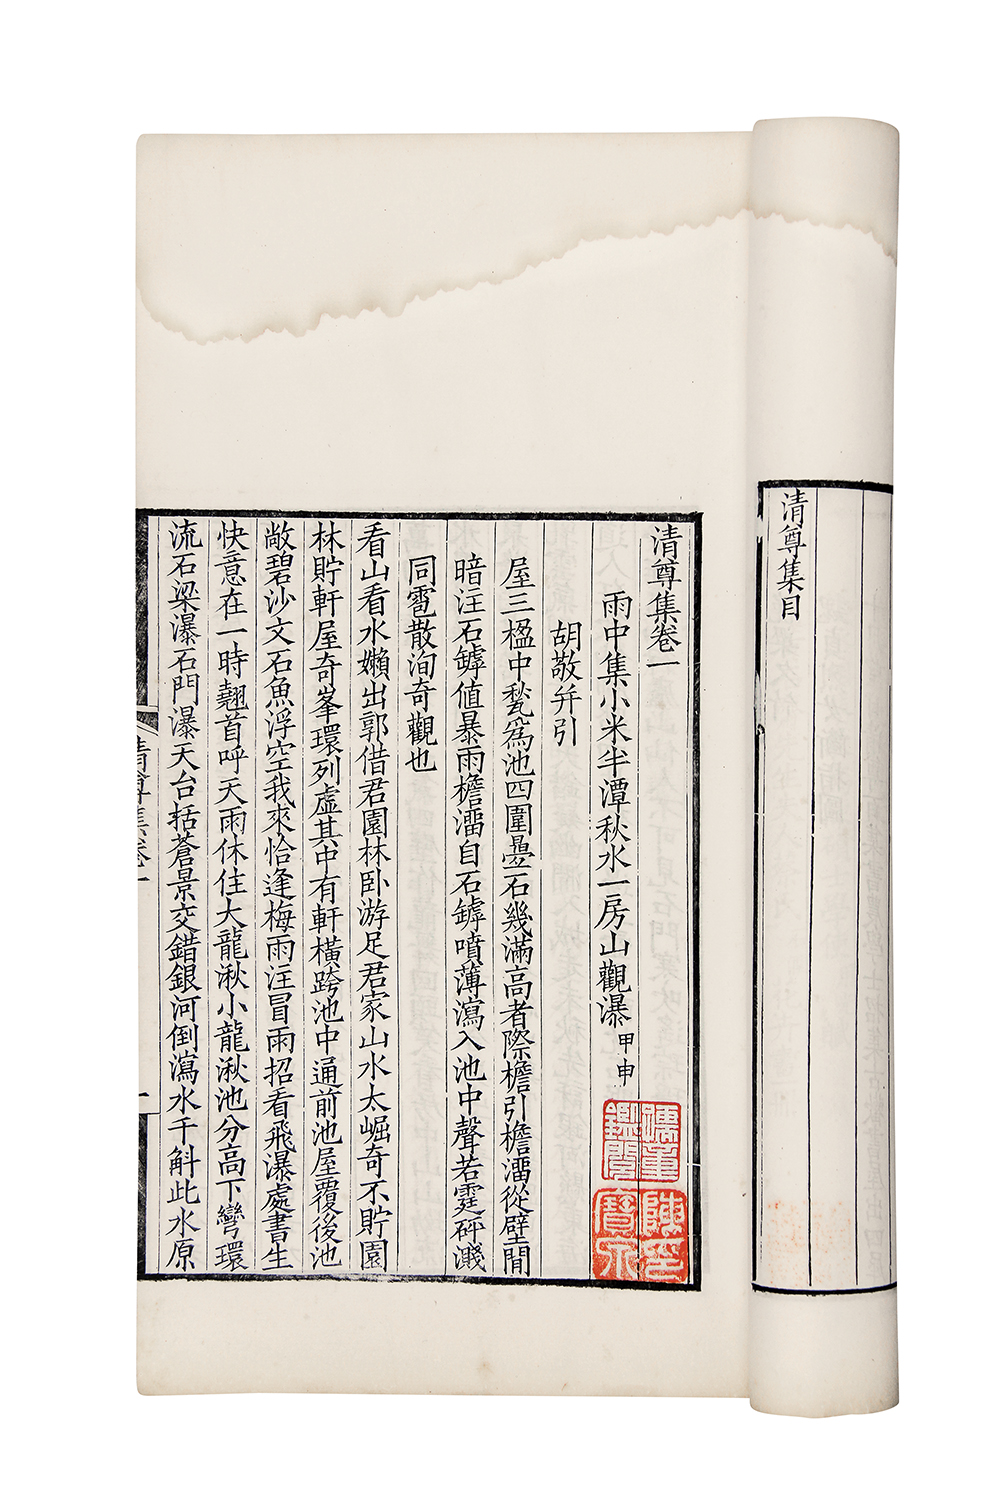 清尊集目
清尊集卷一
雨中集小米半潭秋水一房山觀瀑甲申
胡敬幷引
屋三楹中甃爲池四圍疊石幾滿高者際檐引檐溜從壁間
暗注石罅値暴雨檐溜自石罅噴薄瀉入池中聲若霆砰濺
同雹散洵奇觀也
看山看水嬾出郭借君園林卧游足君家山水太崛奇不貯園
林貯軒屋奇峯環列虛其中有軒橫跨池中通前池屋覆後池
敞碧沙文石魚浮空我來恰逢梅雨注冒雨招看飛瀑處書生
快意在一時翹首呼天雨休住大龍湫小龍湫池分高下彎環
流石梁瀑石門瀑天台括蒼景交錯銀河倒瀉水千斛此水原
清尊集卷一
一